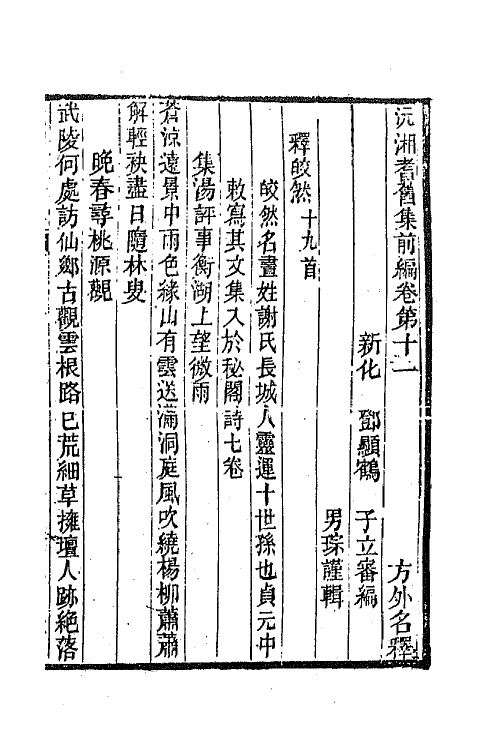 沅湘耆舊集前編卷第十二　方外名釋
新化　鄧顯鶴　子立審編
男琮謹輯
釋皎然十九首
皎然名晝姓謝氏長城人靈運十世孫也貞元中
敕寫其文集入於秘閣詩七卷
集湯評事衡湖上望微雨
蒼涼遠景中雨色緣山有雲送滿洞庭風吹繞楊柳蕭蕭
解輕袂盡日隨林叟
晚春尋桃源觀
武陵何處訪仙鄉古觀雲根路已荒細草擁壇人跡絕落